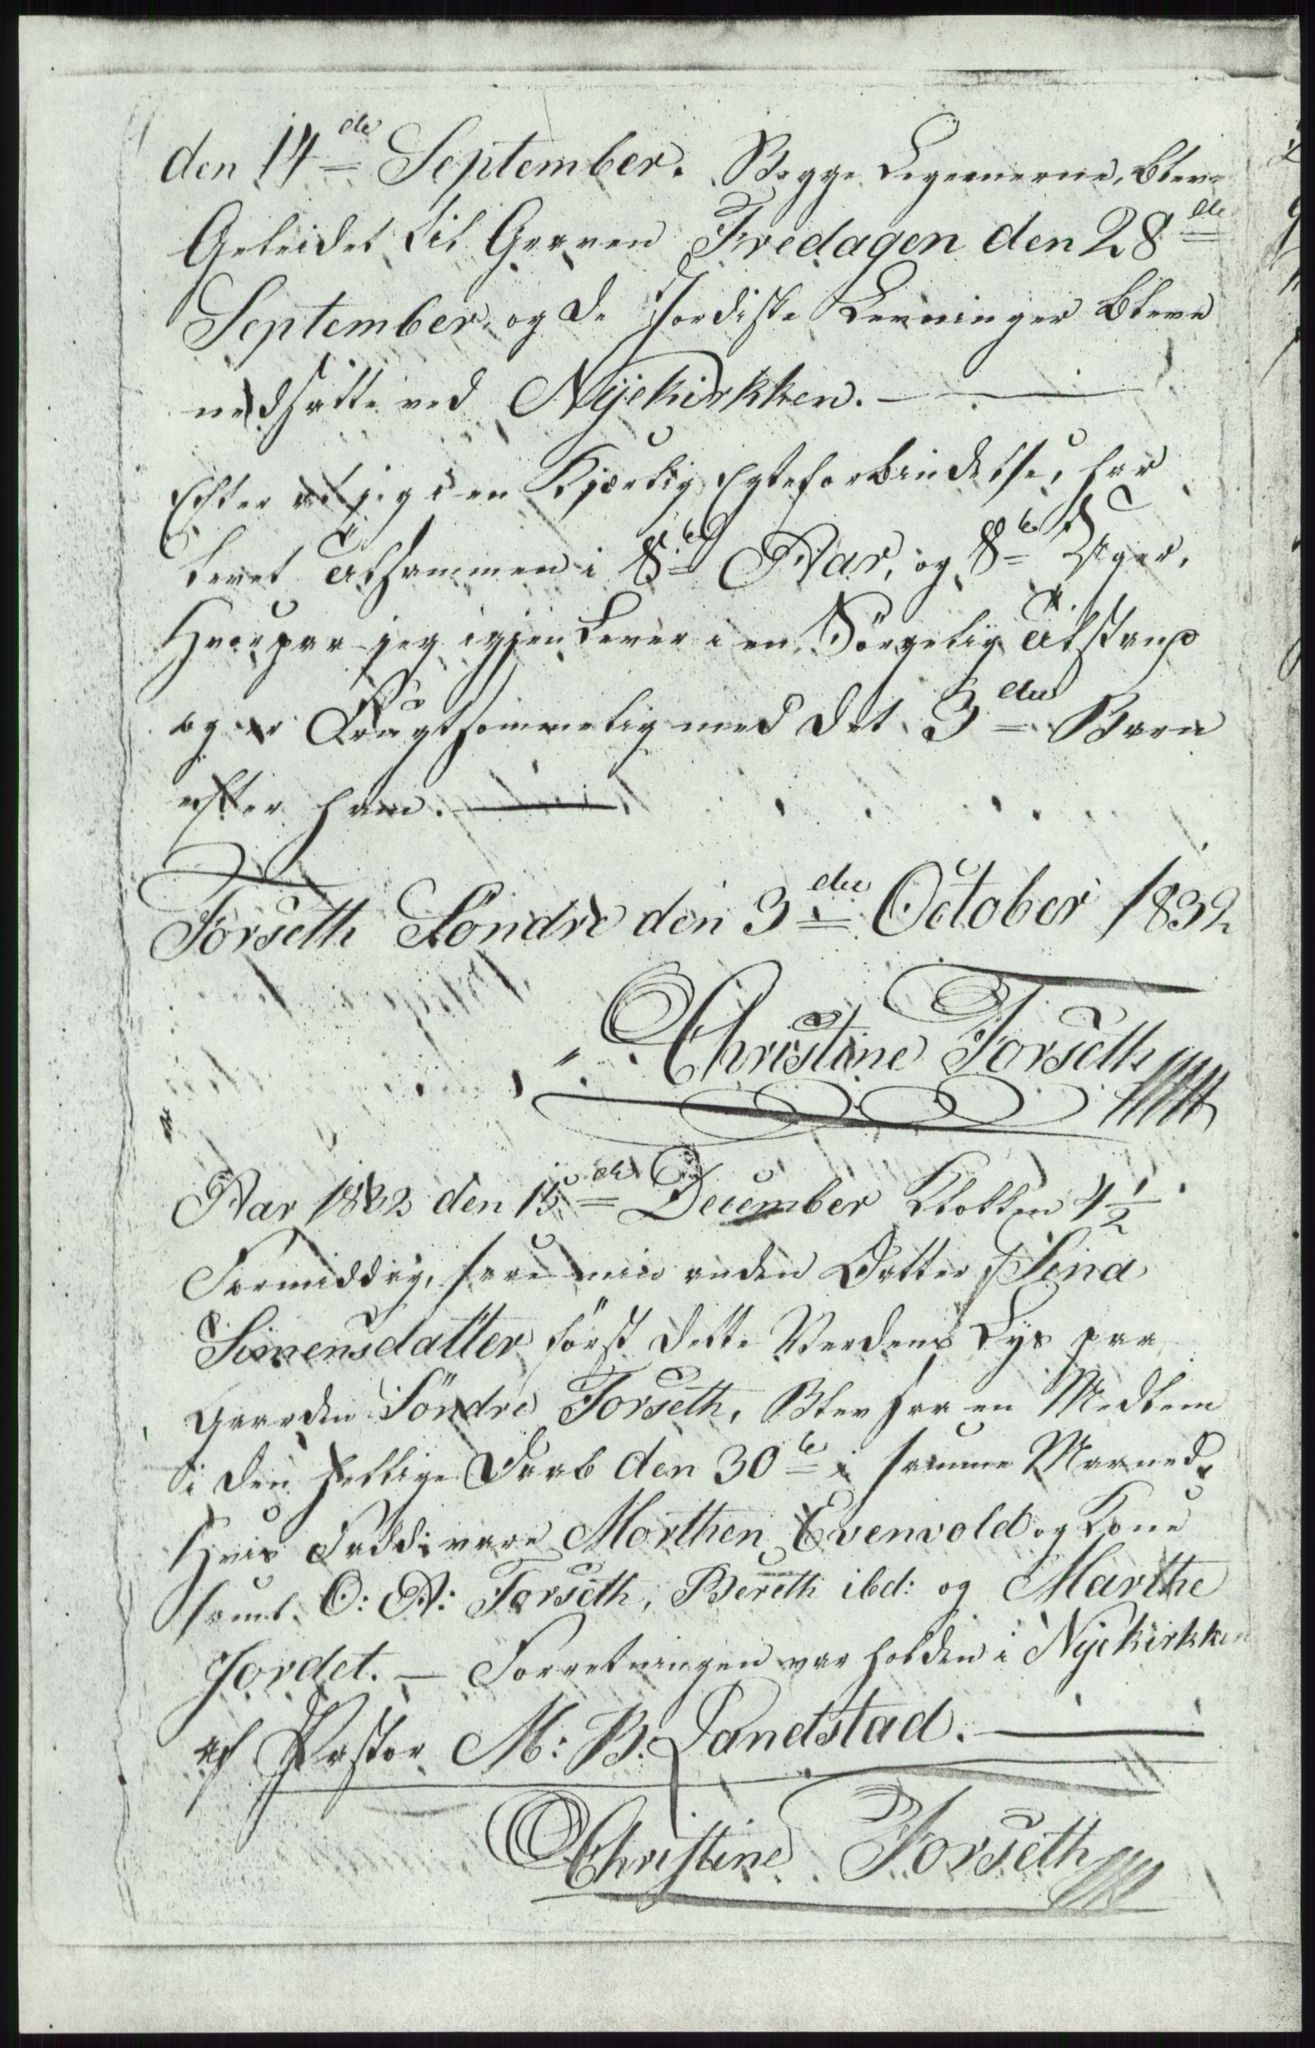 den 14de September. Begge Legemerne, bleve
Geleidet til Graven Fredagen den 28de
September, og de Jordiske Levninger bleve
nedsatte ved Nyekirkken.
Efter at jeg i en Kjærlig Egteforbindelse, har
Levet tilsammen i 8te Aar, og 8te Uger,
Hvorpaa jeg igjen Lever i en Sörgelig
og er Frugtsommelig med det 3die Barn
efter ham.
Forseth Söndre den 3die October 1832
Christine Forseth
Aar 1832 den 15de December Klokken 4 1/2
Formiddag, saae min anden Datter Sina
Simensdatter först dette Verdens Lys paa
gaarden Söndre Forseth, Blev saa en Medlem
i den hellige Daab den 30te i samme Maaned.
Hvis Faddi vare Morthen Evenvold og Kone
samt O: A: Forseth, Bereth ibd: og Marthe
Jordet. — Forretningen var holden i Nyekirkken
af Pastor M: B: Landstad.
Christine Forseth